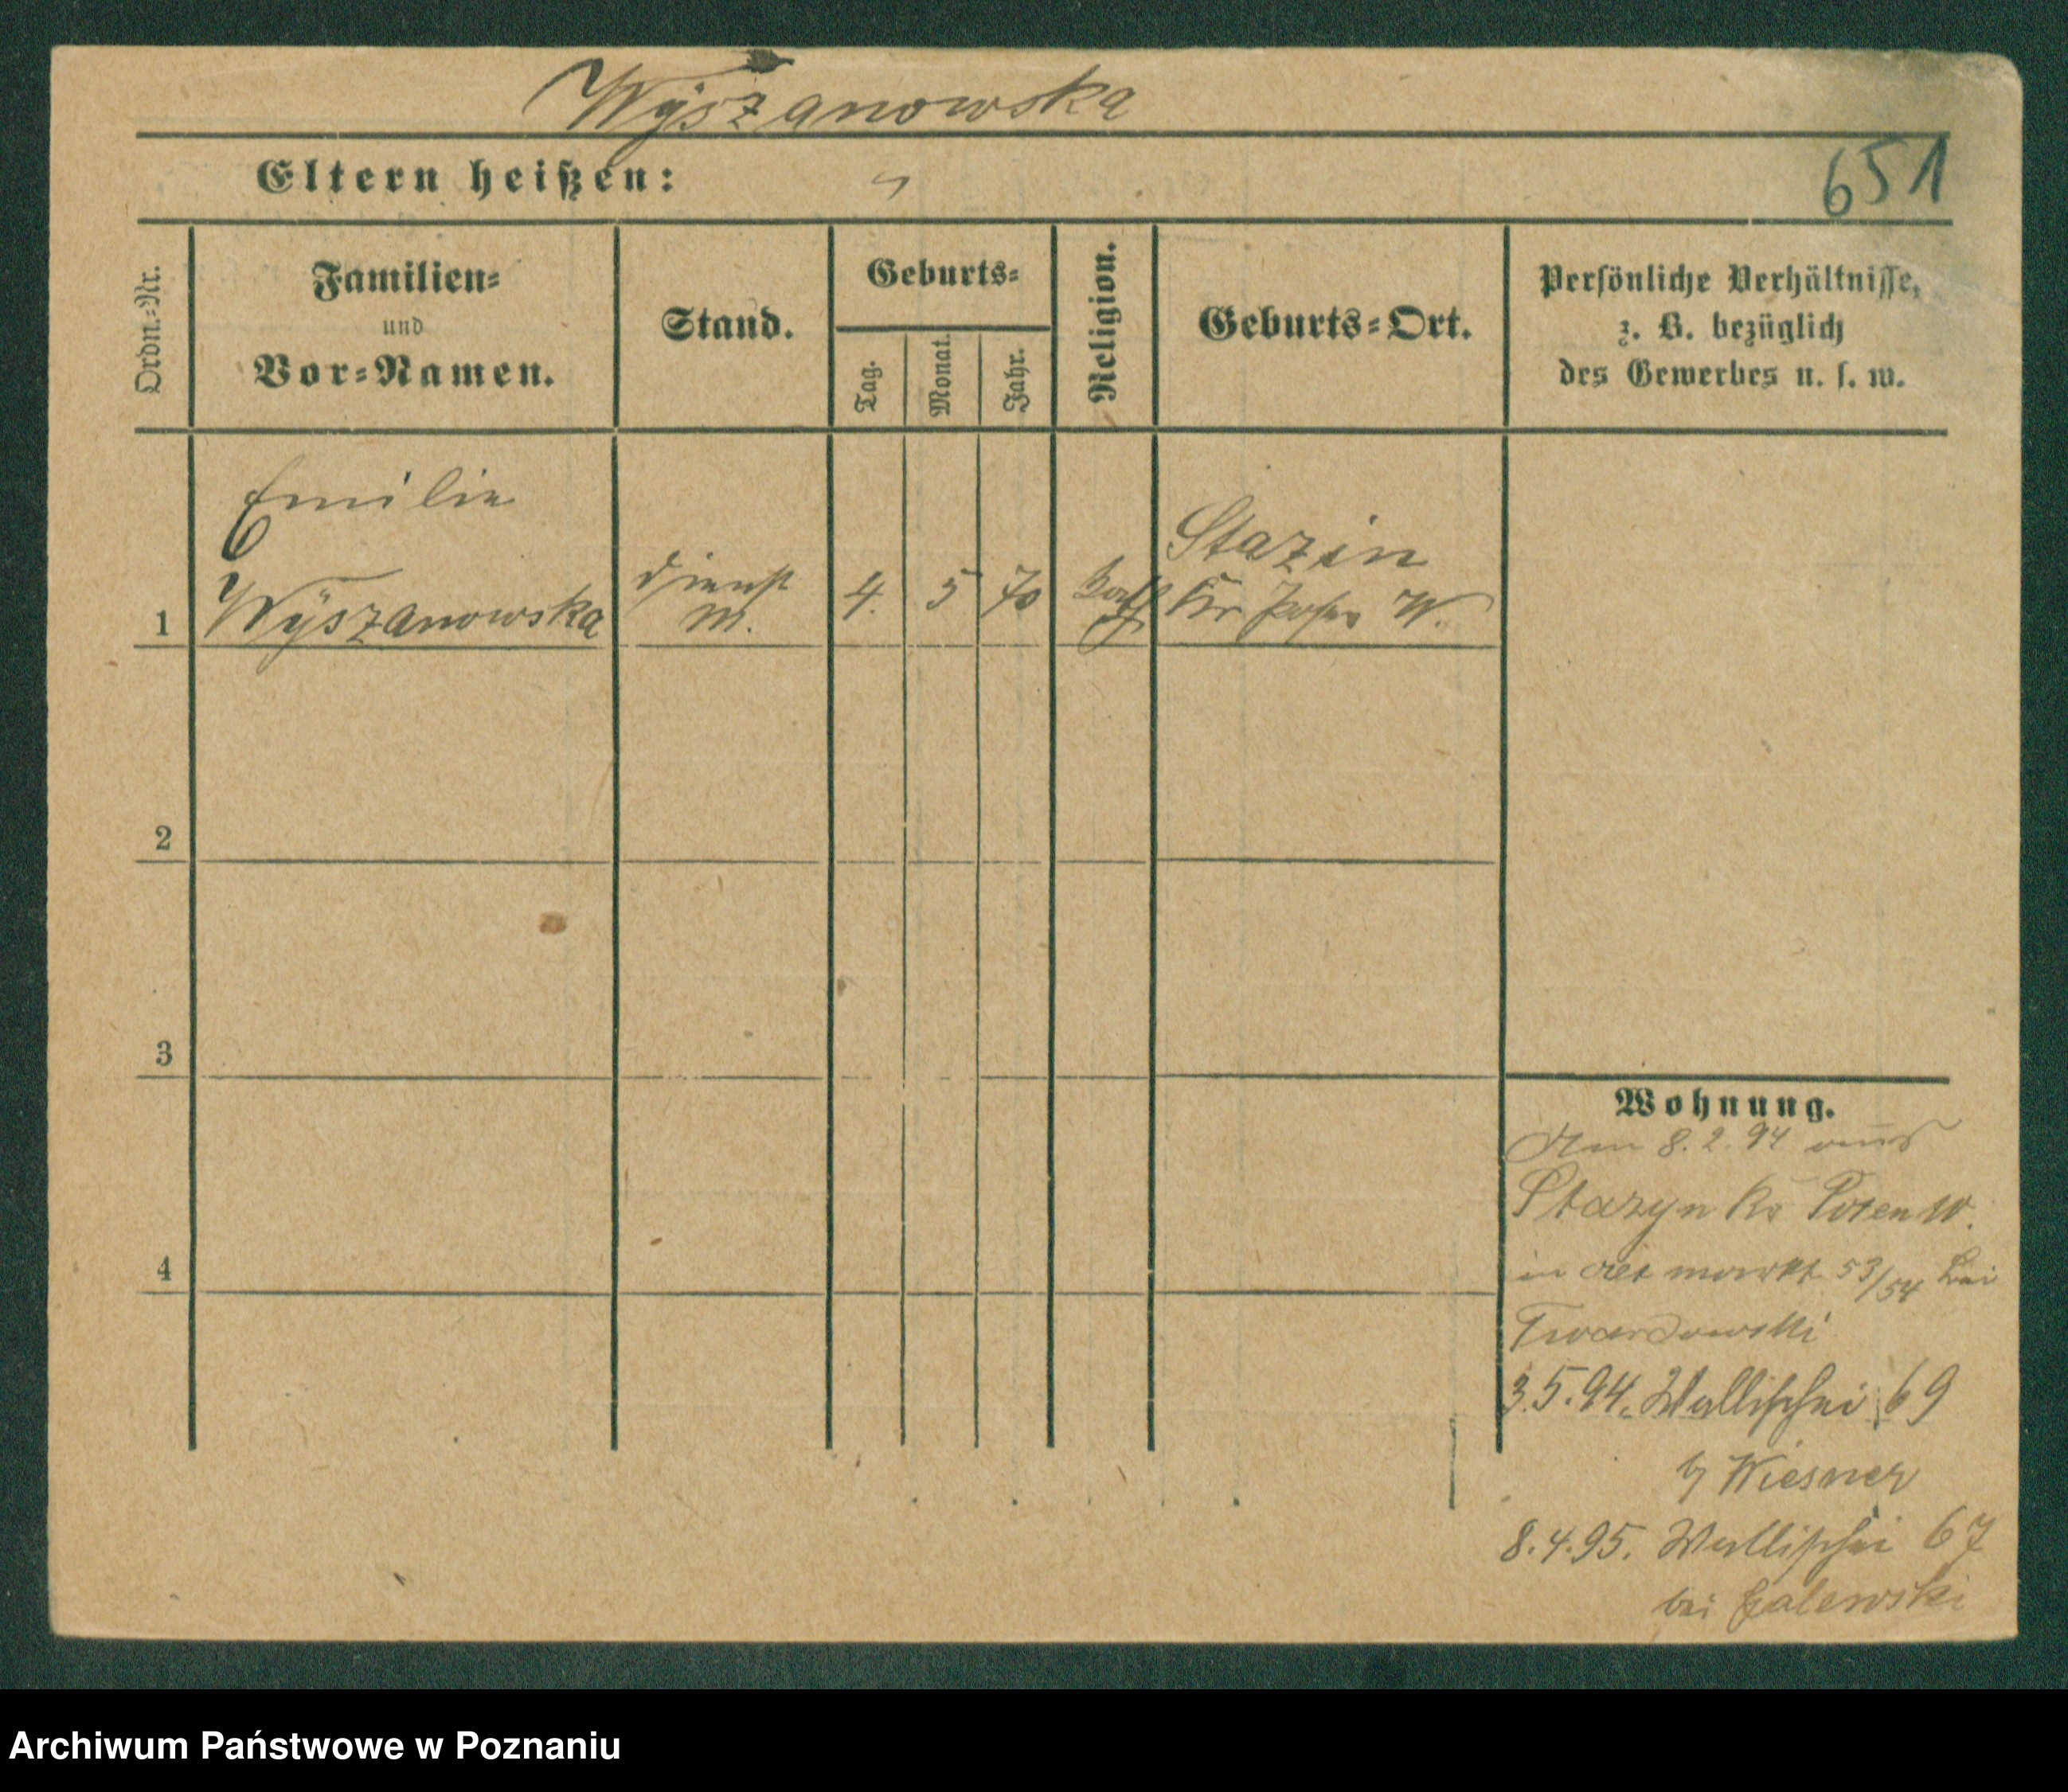 Wyszanowska
Eltern heißen:
651
Ordn.-Nr.
Familien-
und
Vor-Namen.
Stand.
Geburts-
Tag.
Monat.
Jahr.
Religion.
Geburts-Ort.
Persönliche Verhältnisse,
z. B. bezüglich
des Gewerbes u. s. w.
1
Emilie
Wyszanowska
dienst
m.
4. 5 70
kath
Stazin
Kr Posen W.
2
3
4
Wohnung.
Am 8.2.94 aus
Stazyn Kr Posen W.
in alt markt 53/54 bei
Twardowski
3.5.94. Wallischei 69
b/ Wiesner
8.4.95. Wallischei 67
bei Galewski
Archiwum Państwowe w Poznaniu